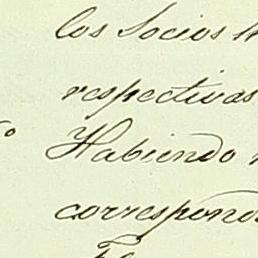 los Socios
respectivas
Habiendo
correspond